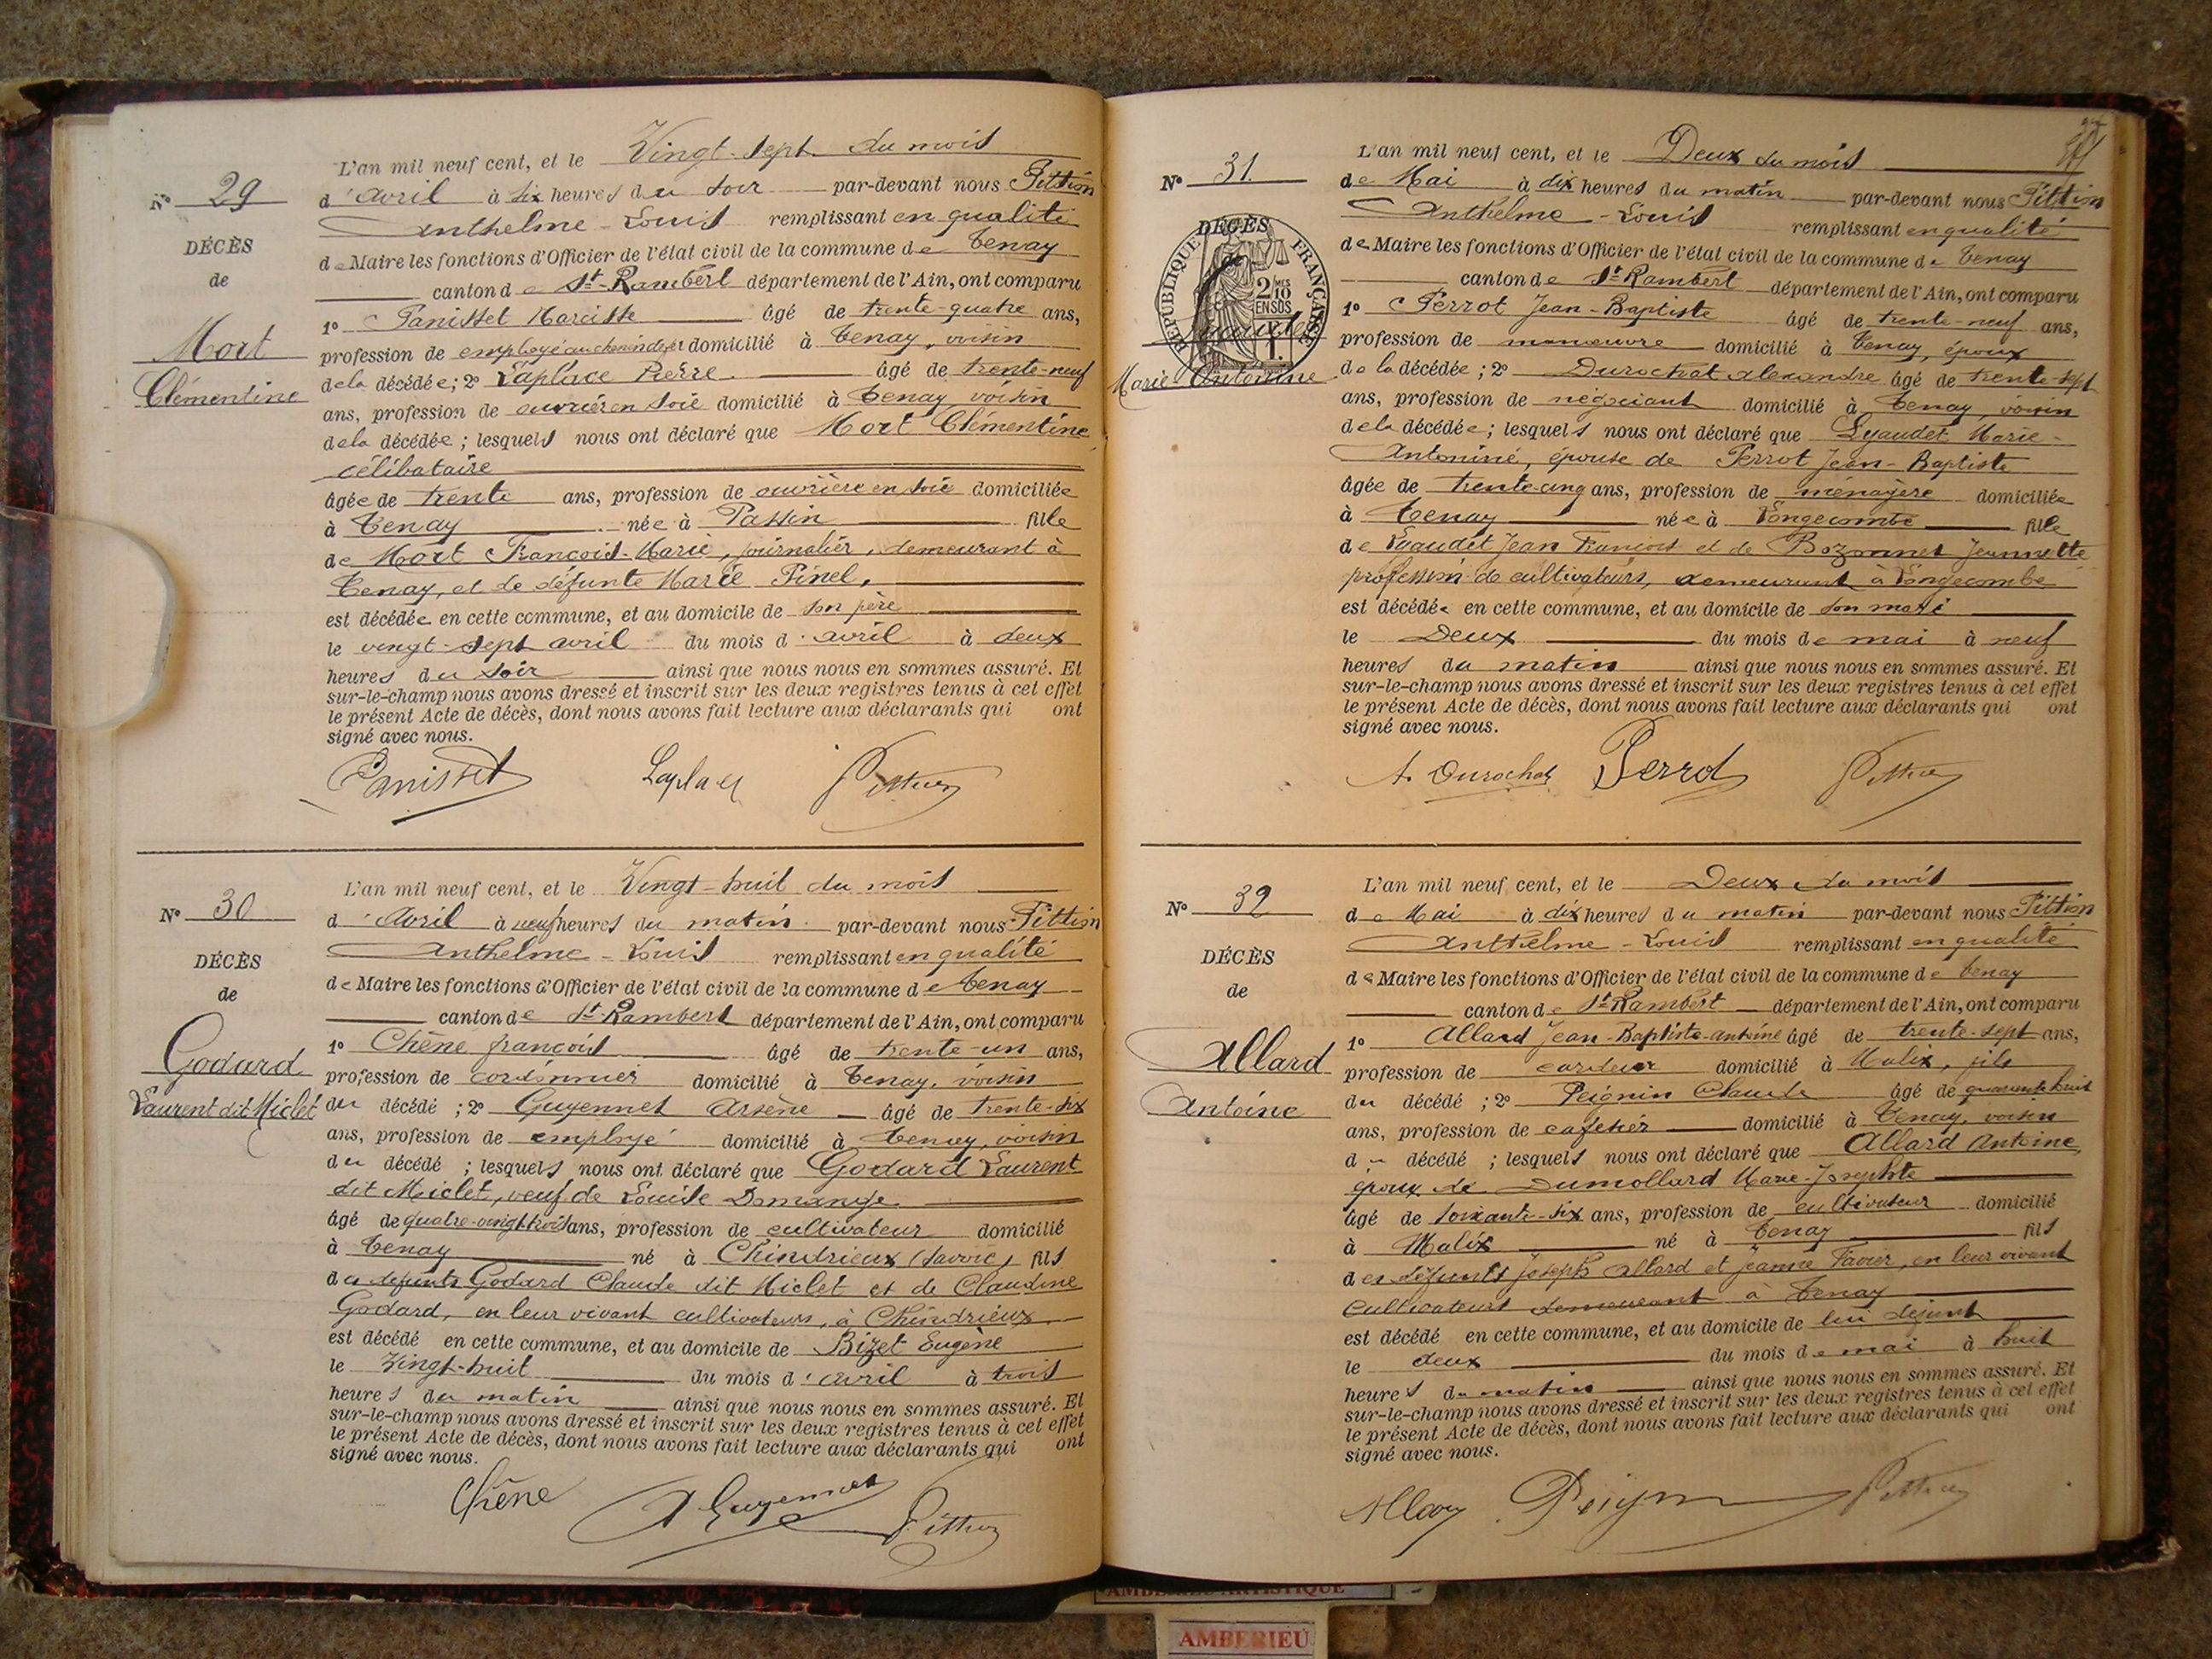 L'an mil neuf cent, et le Vingt-sept du mois
N° 29
d'avril à six heures du soir par-devant nous Pittion
Anthelme-Louis remplissant en qualité
DÉCÈS
de Maire les fonctions d'Officier de l'état civil de la commune de Tenay
de
canton de St-Rambert département de l'Ain, ont comparu
1° Panisset Narcisse âgé de trente-quatre ans,
Mort
profession de employé au chemin de fer domicilié à Tenay, voisin
Clémentine
de la décédée; 2° Laplace Pierre âgé de trente-neuf
ans, profession de ouvrier en soie domicilié à Tenay voisin
de la décédée; lesquels nous ont déclaré que Mort Clémentine,
célibataire
âgée de trente ans, profession de ouvrière en soie domiciliée
à Tenay née à Passin fille
de Mort François-Marie, journalier, demeurant à
Tenay, et de défunte Marie Pinel,
est décédée en cette commune, et au domicile de son père
le vingt-sept avril du mois d'avril à deux
heures du soir ainsi que nous nous en sommes assuré. Et
sur-le-champ nous avons dressé et inscrit sur les deux registres tenus à cet effet
le présent Acte de décès, dont nous avons fait lecture aux déclarants qui ont
signé avec nous.
Panisset Laplace Pittion
L'an mil neuf cent, et le Vingt-huit du mois
N° 30
d'Avril à neuf heures du matin par-devant nous Pittion
Anthelme-Louis remplissant en qualité
DÉCÈS
de Maire les fonctions d'Officier de l'état civil de la commune de Tenay
de
canton de St-Rambert département de l'Ain, ont comparu
1° Chêne françois âgé de trente-un ans,
Godard
profession de cordonnier domicilié à Tenay, voisin
Laurent dit Miclet
du décédé; 2° Guyennet Arsène âgé de trente-six
ans, profession de employé domicilié à Tenay, voisin
du décédé; lesquels nous ont déclaré que Godard Laurent
dit Miclet, veuf de Louise Domange
âgé de quatre-vingt-trois ans, profession de cultivateur domicilié
à Tenay né à Chindrieux (Savoie) fils
des défunts Godard Claude dit Miclet et de Claudine
Godard, en leur vivant cultivateurs, à Chindrieux
est décédé en cette commune, et au domicile de Bizet Eugène
le Vingt-huit du mois d'avril à trois
heures du matin ainsi que nous nous en sommes assuré. Et
sur-le-champ nous avons dressé et inscrit sur les deux registres tenus à cet effet
le présent Acte de décès, dont nous avons fait lecture aux déclarants qui ont
signé avec nous.
Chêne A Guyennet Pittion
L'an mil neuf cent, et le Deux du mois
N° 31
de Mai à dix heures du matin par-devant nous Pittion
Anthelme-Louis remplissant en qualité
DÉCÈS
de Maire les fonctions d'Officier de l'état civil de la commune de Tenay
de
RÉPUBLIQUE FRANÇAISE
2 MES
10
EN SUS
canton de St-Rambert département de l'Ain, ont comparu
1° Perrot Jean-Baptiste âgé de trente-neuf ans,
profession de manœuvre domicilié à Tenay, époux
Marie-Antonine
de la décédée; 2° Durochat Alexandre âgé de trente-sept
ans, profession de négociant domicilié à Tenay, voisin
de la décédée; lesquels nous ont déclaré que Lyaudet Marie-
Antonine, épouse de Perrot Jean-Baptiste
âgée de trente-cinq ans, profession de ménagère domiciliée
à Tenay née à Longecombe fille
de Lyaudet Jean François et de Bozonnet Jeannette
profession de cultivateurs, demeurant à Longecombe
est décédée en cette commune, et au domicile de son mari
le Deux du mois de mai à neuf
heures du matin ainsi que nous nous en sommes assuré. Et
sur-le-champ nous avons dressé et inscrit sur les deux registres tenus à cet effet
le présent Acte de décès, dont nous avons fait lecture aux déclarants qui ont
signé avec nous.
A. Durochat Perrot Pittion
L'an mil neuf cent, et le Deux du mois
N° 32
de Mai à dix heures du matin par-devant nous Pittion
Anthelme-Louis remplissant en qualité
DÉCÈS
de Maire les fonctions d'Officier de l'état civil de la commune de Tenay
de
canton de St-Rambert département de l'Ain, ont comparu
Allard
1° Allard Jean-Baptiste-Antoine âgé de trente-sept ans,
profession de cardeur domicilié à Malix, fils
Antoine
du décédé; 2° Peignin Claude âgé de quarante huit
ans, profession de cafetier domicilié à Tenay, voisin
du décédé; lesquels nous ont déclaré que Allard Antoine,
époux de Dumollard Marie-Josephte
âgé de soixante-six ans, profession de cultivateur domicilié
à Malix né à Tenay fils
des défunts Joseph Allard et Jeanne Favier, en leur vivant
cultivateurs demeurant à Tenay
est décédé en cette commune, et au domicile de lui défunt
le deux du mois de mai à huit
heures du matin ainsi que nous nous en sommes assuré. Et
sur-le-champ nous avons dressé et inscrit sur les deux registres tenus à cet effet
le présent Acte de décès, dont nous avons fait lecture aux déclarants qui ont
signé avec nous.
Pittion
AMBERIEU